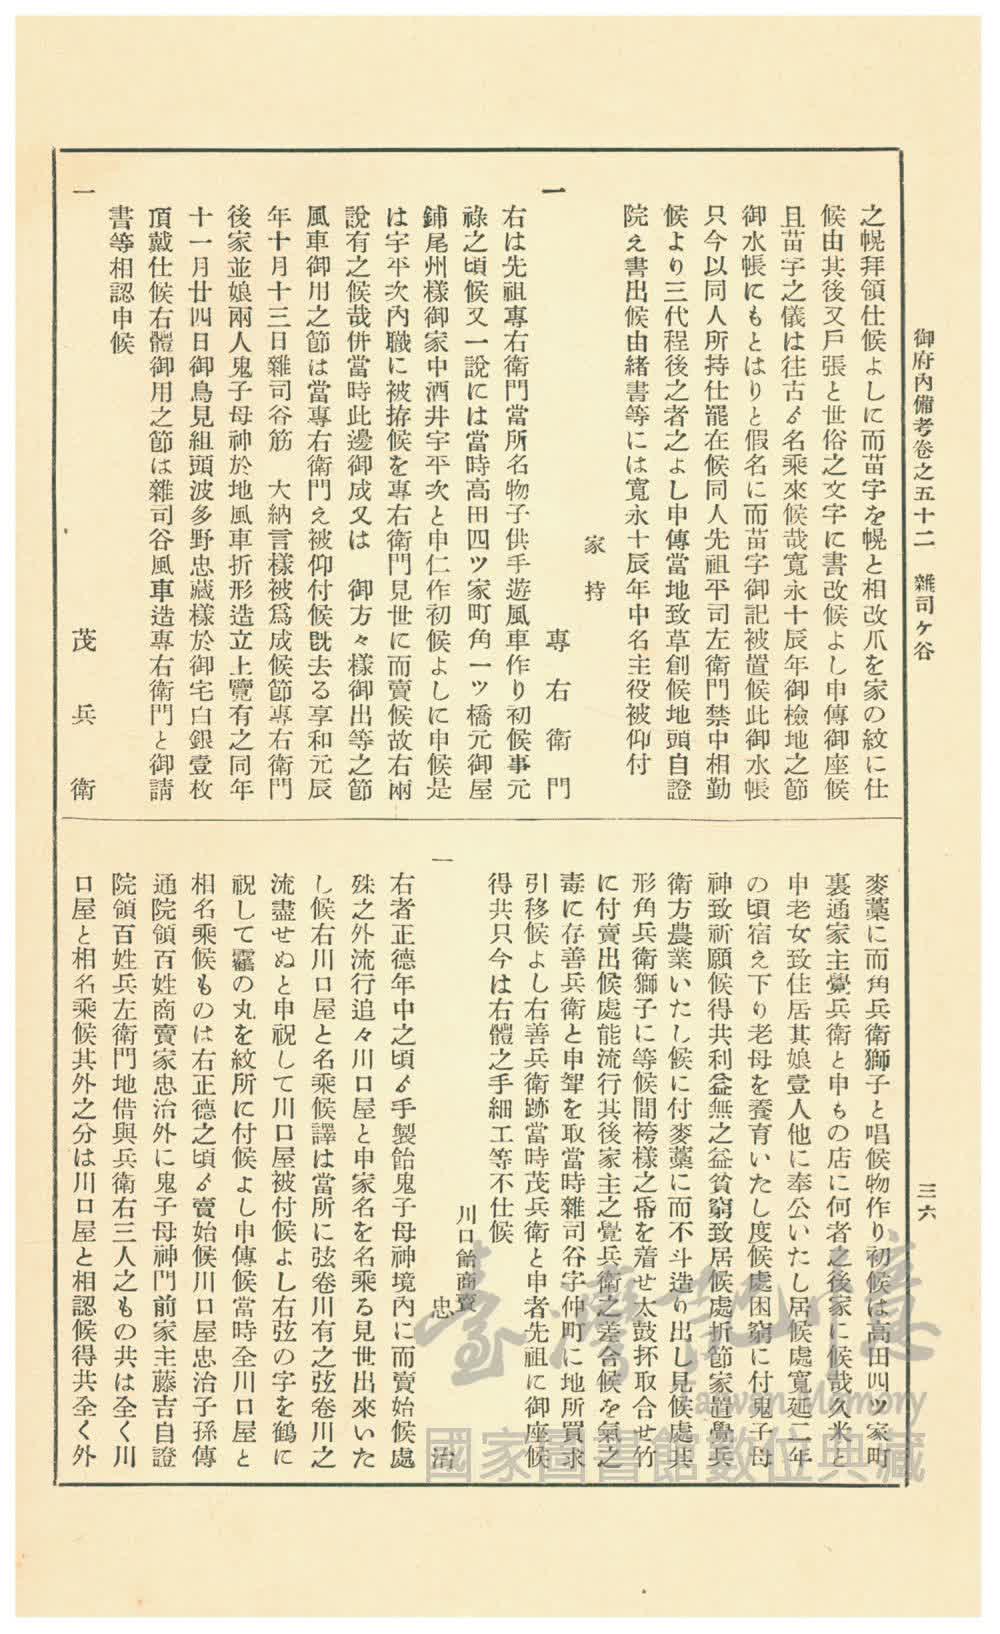 御府內備考卷之五十二　雜司ヶ谷
三六
之幌拜領仕候よしに而苗字を幌と相改爪を家の紋に仕
候由其後又戶張と世俗之文字に書改候よし申傳御座候
且苗字之儀は往古ゟ名乘來候哉寬永十辰年御檢地之節
御水帳にもとはりと假名に而苗字御記被置候此御水帳
只今以同人所持仕罷在候同人先祖平司左衞門禁中相勤
候より三代程後之者之よし申傳當地致草創候地頭自證
院え書出候由緖書等には寬永十辰年中名主役被仰付
家持
一　專右衞門
右は先祖專右衞門當所名物子供手遊風車作り初候事元
祿之頃候又一說には當時高田四ッ家町角一ッ橋元御屋
鋪尾州樣御家中酒井宇平次と申仁作初候よしに申候是
は宇平次內職に被拵候を專右衞門見世に而賣候故右兩
說有之候哉併當時此邊御成又は　御方々樣御出等之節
風車御用之節は當專右衞門え被仰付候旣去る享和元辰
年十月十三日雜司谷筋　大納言樣被爲成候節專右衞門
後家並娘兩人鬼子母神於地風車折形造立上覽有之同年
十一月廿四日御鳥見組頭波多野忠藏樣於御宅白銀壹枚
頂戴仕候右體御用之節は雜司谷風車造專右衞門と御請
書等相認申候
一　茂兵衞
麥藁に而角兵衞獅子と唱候物作り初候は高田四ッ家町
裏通家主覺兵衞と申もの店に何者之後家に候哉久米と
申老女致住居其娘壹人他に奉公いたし居候處寬延二年
の頃宿え下り老母を養育いたし度候處困窮に付鬼子母
神致祈願候得共利益無之益貧窮致居候處折節家置覺兵
衞方農業いたし候に付麥藁に而不斗造り出し見候處其
形角兵衞獅子に等候間袴樣之昏を着せ太鼓抔取合せ竹
に付賣出候處能流行其後家主之覺兵衞之差合候を氣之
毒に存善兵衞と申聟を取當時雜司谷字仲町に地所買求
引移候よし右善兵衞跡當時茂兵衞と申者先祖に御座候
得共只今は右體之手細工等不仕候
川口飴商賣
一　忠治
右者正德年中之頃ゟ手製飴鬼子母神境內に而賣始候處
殊之外流行追々川口屋と申家名を名乘る見世出來いた
し候右川口屋と名乘候譯は當所に弦卷川有之弦卷川之
流盡せぬと申祝して川口屋被付候よし右弦の字を鶴に
祝して靏の丸を紋所に付候よし申傳候當時全川口屋と
相名乘候ものは右正德之頃ゟ賣始候川口屋忠治子孫傳
通院領百姓商賣家忠治外に鬼子母神門前家主藤吉自證
院領百姓兵左衞門地借與兵衞右三人之もの共は全く川
口屋と相名乘候其外之分は川口屋と相認候得共全く外
臺灣記憶
Taiwan Memory
國家圖書館數位典藏